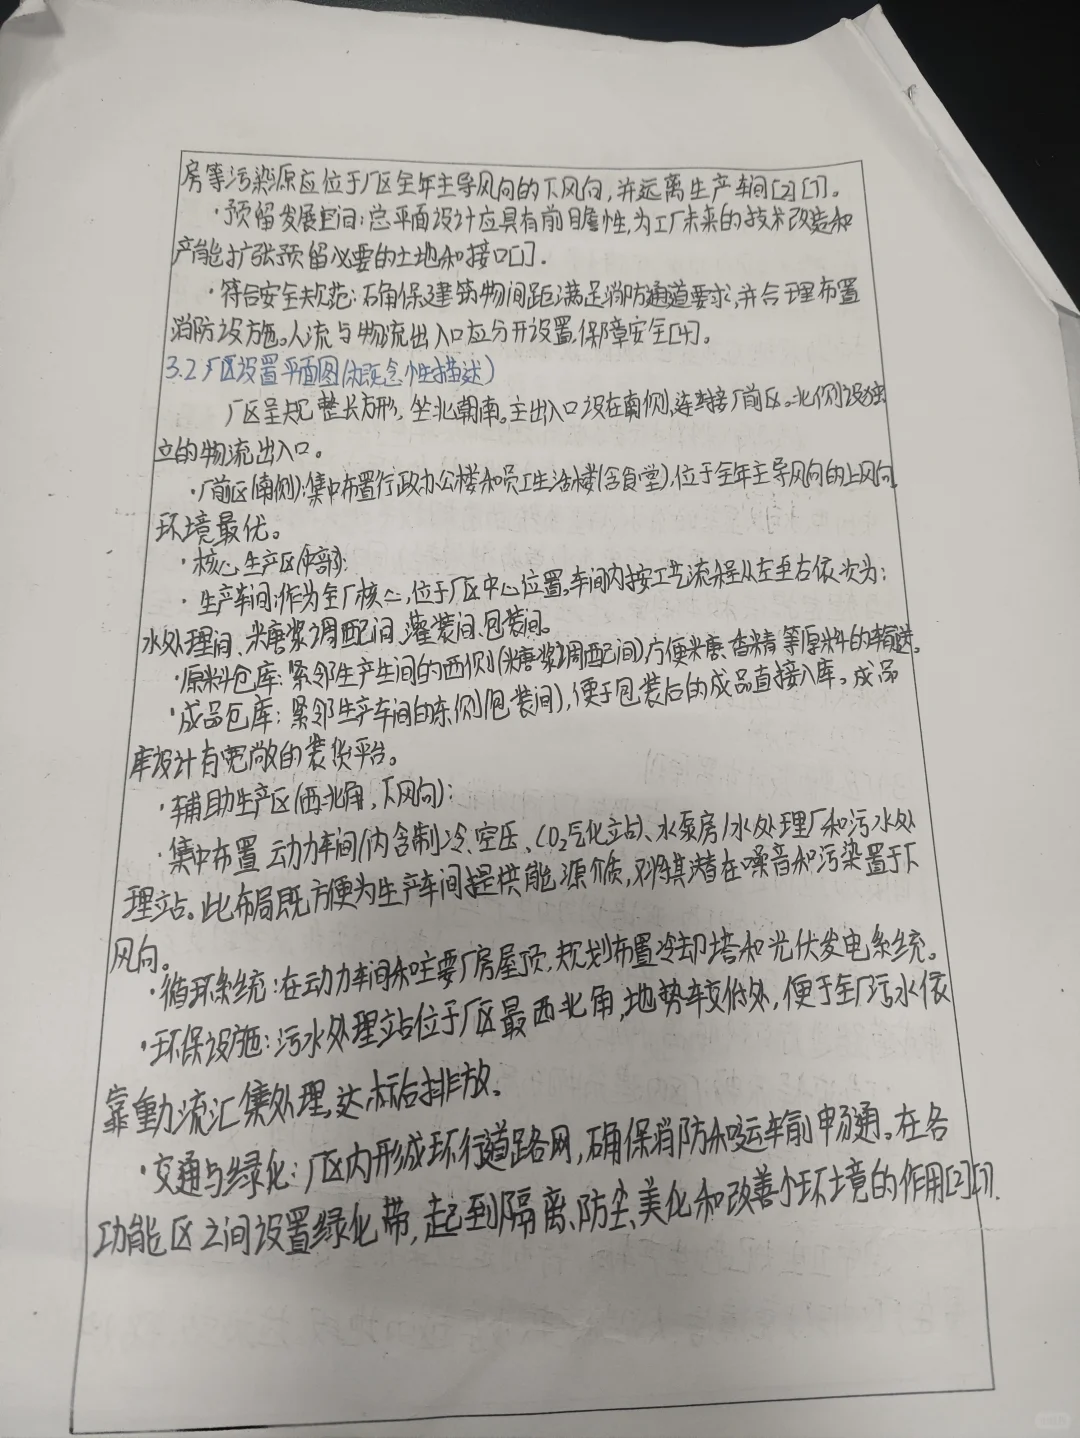 房等污染源应位于厂区全年主导风向的下风向,并远离生产车间[2][7]。
·预留发展空间:总平面设计应具有前瞻性,为工厂未来的技术改造和
产能扩张预留必要的土地和接口[1].
·符合安全规范:确保建筑物间距满足消防通道要求,并合理布置
消防设施。人流与物流出入口应分开设置,保障安全[4]。
3.2厂区设置平面图(概念性描述)
厂区呈规整长方形,坐北朝南。主出入口设在南侧,连接厂前区。北侧设独
立的物流出入口。
·厂前区(南侧):集中布置行政办公楼和员工生活楼(含食堂),位于全年主导风向的上风向,
环境最优。
·核心生产区(中部):
·生产车间:作为全厂核心,位于厂区中心位置,车间内按工艺流程从左至右依次为:
水处理间、糖浆调配间、灌装间、包装间。
·原料仓库:紧邻生产车间的西侧(糖浆调配间),方便糖、香精等原料的输送。
·成品仓库:紧邻生产车间的东侧(包装间),便于包装后的成品直接入库。成品
库设计有宽敞的装货平台。
·辅助生产区(西北角,下风向):
·集中布置动力车间(内含制冷、空压、CO₂气化站)、水泵房/水处理厂和污水处
理站。此布局既方便为生产车间提供能源介质,又将其潜在噪音和污染置于下
风向。
·循环系统:在动力车间和主要厂房屋顶,规划布置冷却塔和光伏发电系统。
·环保设施:污水处理站位于厂区最西北角,地势较低处,便于全厂污水依
靠重力流汇集处理,达标后排放。
·交通与绿化:厂区内形成环行道路网,确保消防和运输畅通。在各
功能区之间设置绿化带,起到隔离、防尘、美化和改善小环境的作用[2][7].